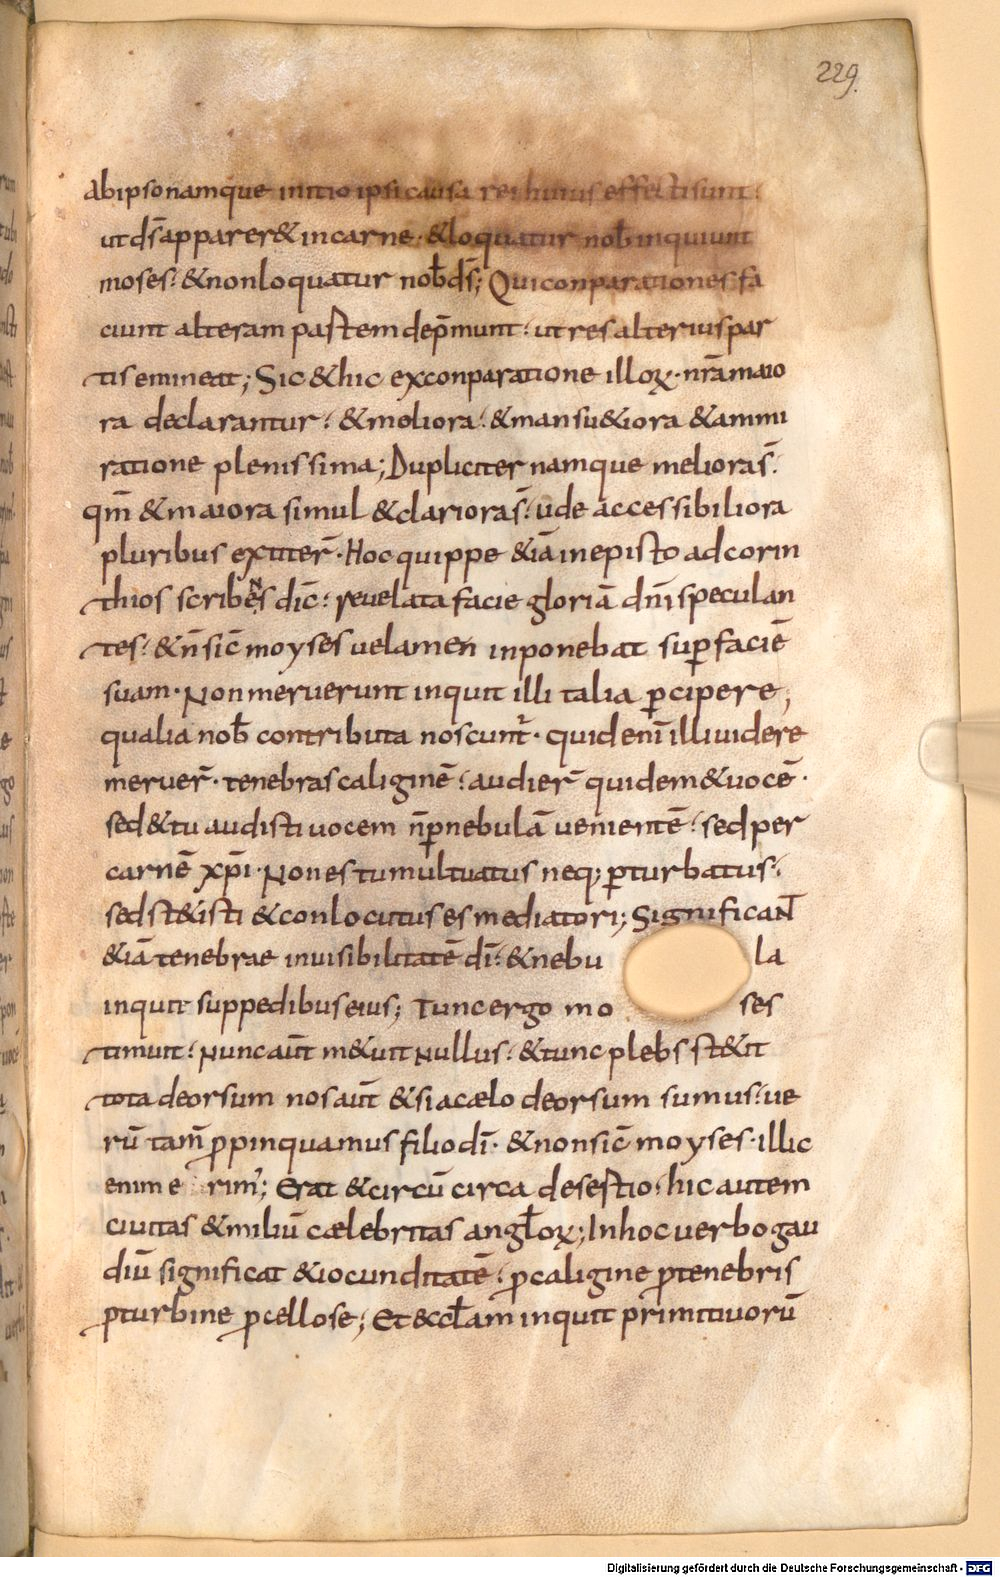 229.
Abipsonamque initio ipsi causa rei huius effecti sunt·
ut ds̄ apparer& incarne· &loquatur nob̄ inquiunt
moses· &nonloquatur nob̄ ds̄; Qui conparationes fa
ciunt alteram partem dep̄munt· ut res alterius par
tis emineat; Sic &hic exconparatione illoꝝ· nr̄a maio
ra declarantur· &meliora· &mansu&iora &ammi
ratione plenissima; Dupliciter namque meliora s̄·
qm̄ &maiora simul &clariora s̄· ude accessibiliora
pluribus exiter̄· Hoc quippe &iā inepisto adcorin
thios scribens dic̄· revelata facie gloriā dn̄i speculan
tes· &n̄ sic̄ moyses velamen inponebat sup̱ faciē
suam· Non meruerunt inquit illi talia ꝑcipere;
qualia nob̄ contributa noscunt̄· quid enī illi uidere
meruer̄· tenebras caliginē· audier̄ quidem &uocē·
sed &tu audisti uocem n̄ ꝑnebulā uenientē· sed per
carnē xp̄i· Non es tumultuatus neq; ꝑturbatus·
sed st&isti &conlocutus es mediatori; Significan̄
&iā tenebrae inuisibilitatē dī· &nebu la
inquit sup pedibus eius; Tunc ergo mo ses
timuit· Nunc aūt m&uit Nullus· &tunc plebs st&it
tota deorsum nos aūt &si acælo deorsum sumus· ue
rū tam̄ ꝓpinquamus filio dī· &non sic̄ moyses· illic
enim e rim'; Erat &circū circa desertio· hic autem
ciuitas &miliū cælebritas angl̄oꝝ; In hoc uerbo gau
diū significat &iocunditatē· ꝓ caligine ꝓ tenebris
ꝓ turbine ꝓcellose; Et &ccl̄am inquit primitiuorū
Digitalisierung gefördert durch die Deutsche Forschungsgemeinschaft - DFG